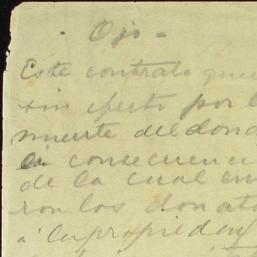 - Ojo -
Este contrato que
sin efecto por l
muerte del dona
en consecuenci
de la cual en
ron los donata
a la propiedad